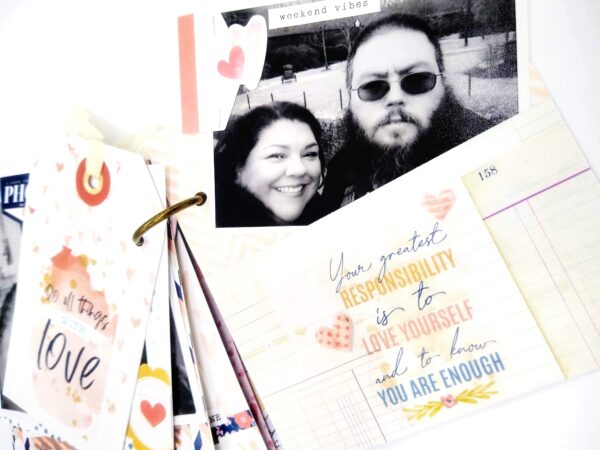 weekend vibes
158
PHO
do all things
WITH
love
Your greatest
RESPONSIBILITY
is to
LOVE YOURSELF
and to know
YOU ARE ENOUGH
NE